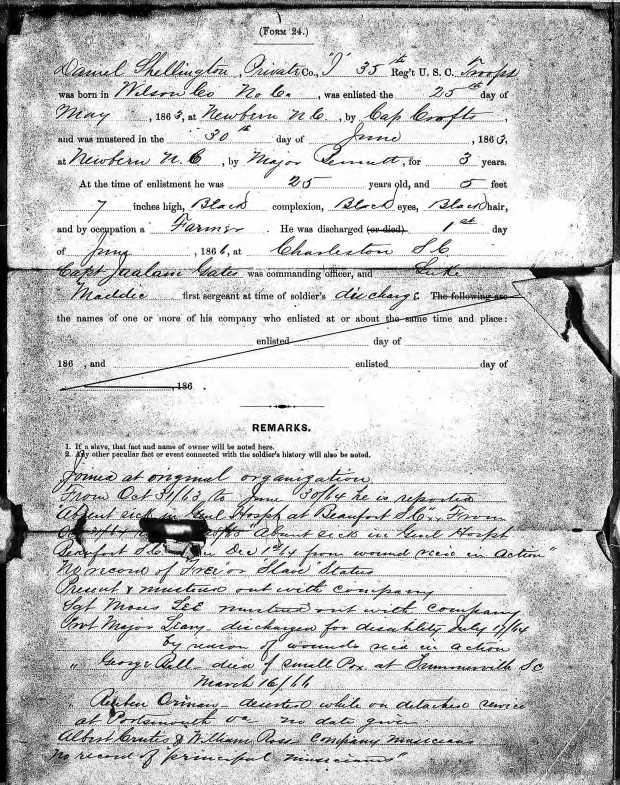 (FORM 24.)
Daniel Shellington, Private Co., "I" 35th Reg't U. S. C. Troops
was born in Wilson Co No Ca., was enlisted the 25th day of
May, 1863, at Newbern N.C., by Cap Croft,
and was mustered in the 30th day of June, 1863,
at Newbern N.C, by Major, for 3 years.
At the time of enlistment he was 25 years old, and 5 feet
7 inches high, Black complexion, Black eyes, Black hair,
and by occupation a Farmer. He was discharged (or died). 1st day
of June, 1866, at Charleston S.C
Capt Jaalam Gates was commanding officer, and Luke
Maddic first sergeant at time of soldier's discharge. The following are
the names of one or more of his company who enlisted at or about the same time and place:
enlisted day of
186 , and enlisted day of
, 186 .
REMARKS.
1. If a slave, that fact and name of owner will be noted here.
2. Any other peculiar fact or event connected with the soldier's history will also be noted.
Joined at original organization
From Oct 31/63 to June 30/64 he is reported
"Absent sick in Genl Hospt at Beaufort S.C" From
"Absent sick in Genl Hospt
Beaufort Dec 1st/64 from wound recd in action"
No record of "Free" or "Slave" Status
Present & mustered out with company
Sgt Moses Lee mustered out with company
Major discharged for disability July 17/64
by reason of wounds recd in action
" George Bell died of Small Pox at Summerville SC
March 16/66
Reuben deserted while on detached service
at Portsmouth Va no date given
Albert & William Ross company musicians
No record of "principal musicians"